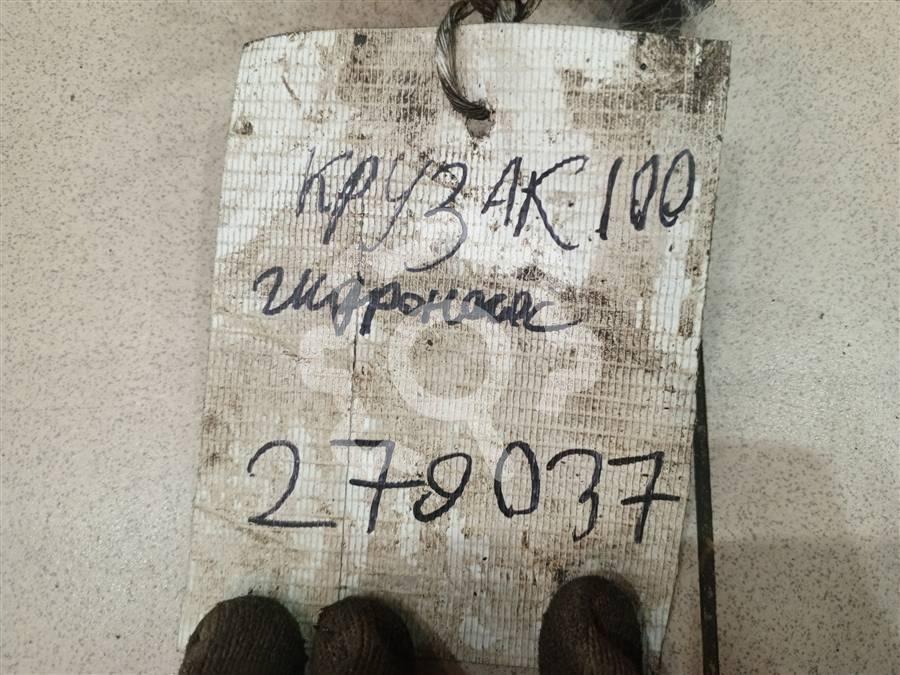 КРУЗАК 100
гидронасос
278037